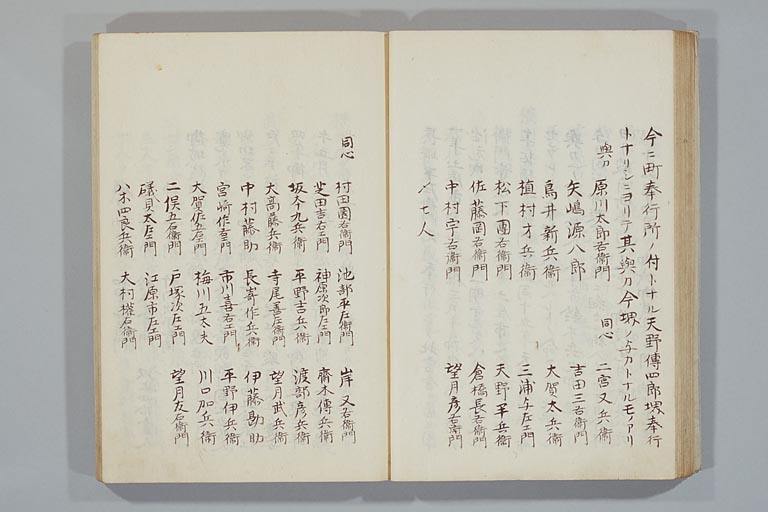 今ニ町奉行所ノ付トナル天野傳四郎堺奉行
トナリシニヨリテ其與力今堺ノ与力トナルモノアリ
與力 原川太郎右衛門 同心 二宮又兵衛
矢嶋源八郎 吉田三右衛門
鳥井新兵衛 大賀太兵衛
植村才兵衛 三浦与左エ門
松下團右衛門 天野平兵衛
佐藤岡右衛門 倉橋長右衛門
中村宇右衛門 望月彦右衛門
〆七人
同心 村田園右衛門 池部平左衛門 岸又右衛門
芝田吉右エ門 神原次郎左エ門 齋木傳兵衛
坂本九兵衛 平野吉兵衛 渡部彦兵衛
大高藤兵衛 寺尾善左衛門 望月武兵衛
中村藤助 長嵜作兵衛 伊藤勘助
宮崎作右エ門 市川喜右エ門 平野伊兵衛
大賀佐五左エ門 梅川五太夫 川口加兵衛
二俣五右衛門 戸塚次左エ門 望月友右衛門
礒貝太左エ門 江原市左エ門
八木四良兵衛 大村権右衛門